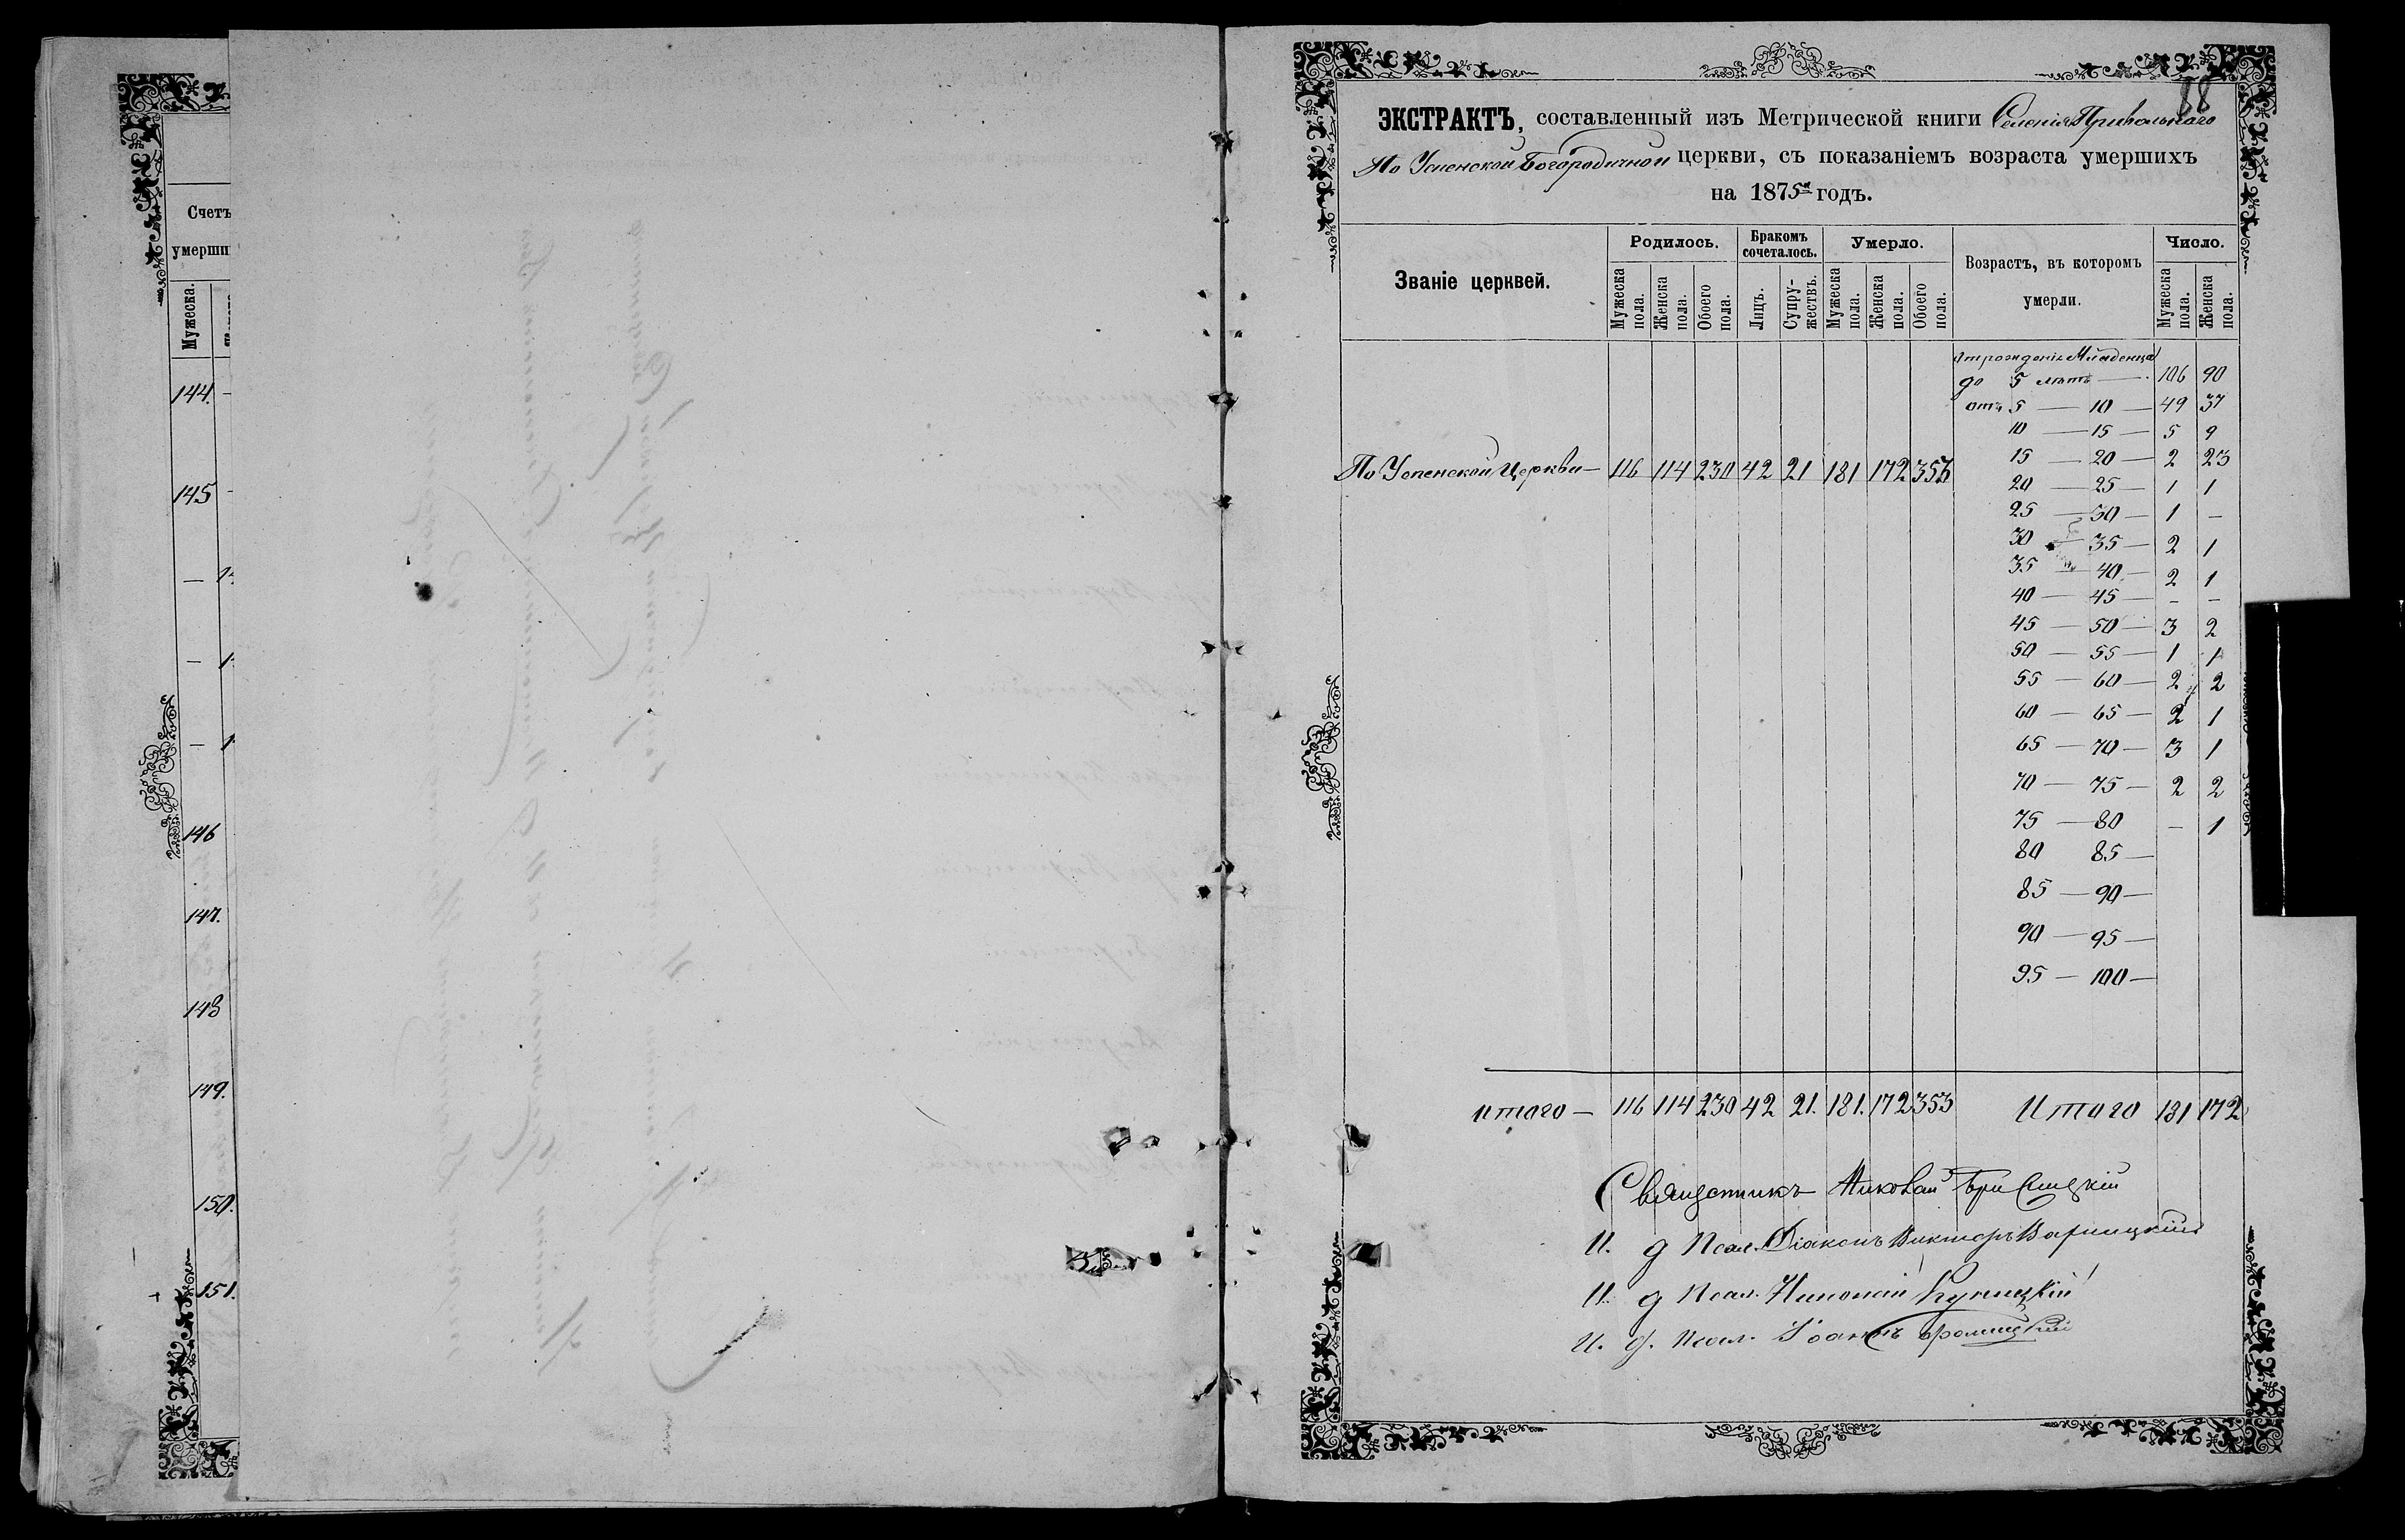 Счетъ
умерши
Мужеска.
144.
145
146
147.
148
149.
150.
151.
88
ЭКСТРАКТЪ, составленный изъ Метрической книги Селенія Привольнаго
по Успенской Богородичной церкви, съ показаніемъ возраста умершихъ
на 1875й годъ.
Званіе церквей. Родилось. Бракомъ сочеталось. Умерло. Возрастъ, въ которомъ умерли. Число.
Мужеска пола. Женска пола. Обоего пола. Лицъ. Супружествъ. Мужеска пола. Женска пола. Обоего пола. Мужеска пола. Женска пола.
отрожденія Младенца
до 5 летъ — 106 90
отъ 5 — 10 — 49 37
10 — 15 — 5 9
По Успенской Церкви — 116 114 230 42 21 181 172 353
15 — 20 — 2 23
20 — 25 — 1 1
25 — 30 — 1 —
30 — 35 — 2 1
35 — 40 — 2 1
40 — 45 — — —
45 — 50 — 3 2
50 — 55 — 1 1
55 — 60 — 2 2
60 — 65 — 2 1
65 — 70 — 3 1
70 — 75 — 2 2
75 — 80 — 1
80 85 —
85 — 90 —
90 — 95 —
95 — 100 —
итого — 116 114 230 42 21. 181. 172 353 Итого 181 172
Священникъ Николай
И. д Псал. Діаконъ Викторъ Варницкій
И. д Псал. Николай Купицкій
И. д. Псал. Іоаннъ